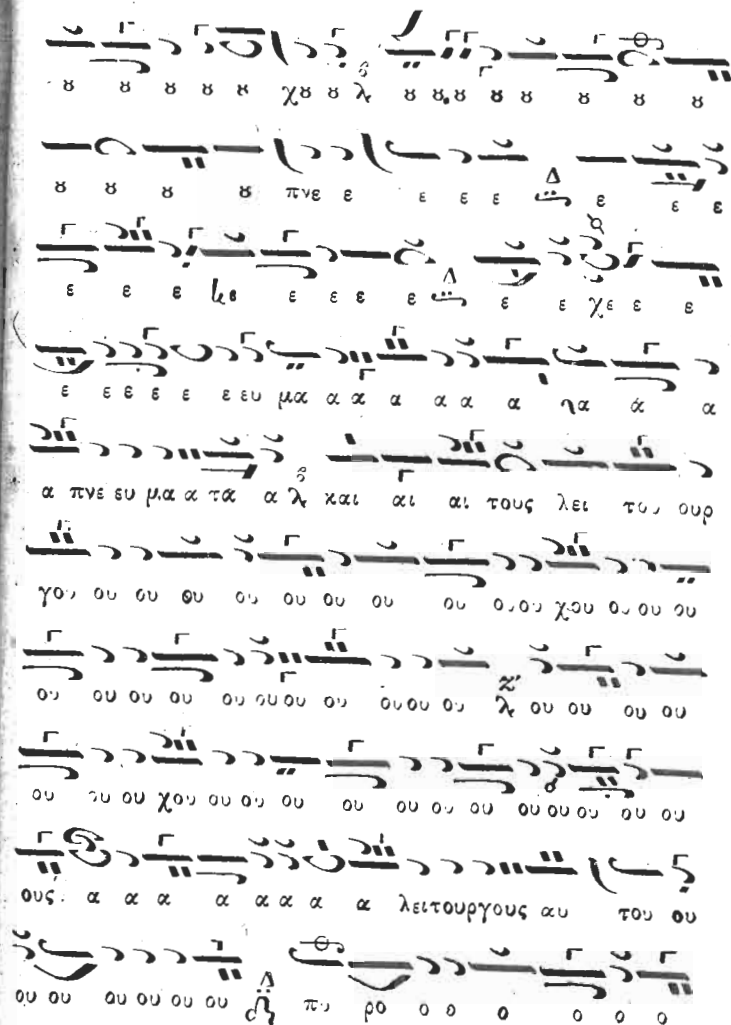 ȣ ȣ ȣ ȣ ȣ χȣ ȣ λ ȣ ȣ ȣ ȣ ȣ ȣ ȣ ȣ
ȣ ȣ ȣ ȣ πνε ε ε ε ε Δ ε ε ε
ε ε ε ε ε ε ε Δ ε ε χε ε ε
ε ε ε ε ε ε ευ μα α α α α α α α ά α
α πνε ευ μα α τα α λ και αι αι τους λει του ουρ
γου ου ου ου ου ου ου ου ου ου ου χου ου ου ου
ου ου ου ου ου ου ου ου ου ου ου Ζ' λ ου ου ου ου
ου ου ου χου ου ου ου ου ου ου ου ου ου ου ου ου
ους α α α α α α α α λειτουργους αυ του ου
ου ου ου ου ου ου Δ πυ ρο ο ο ο ο ο ο